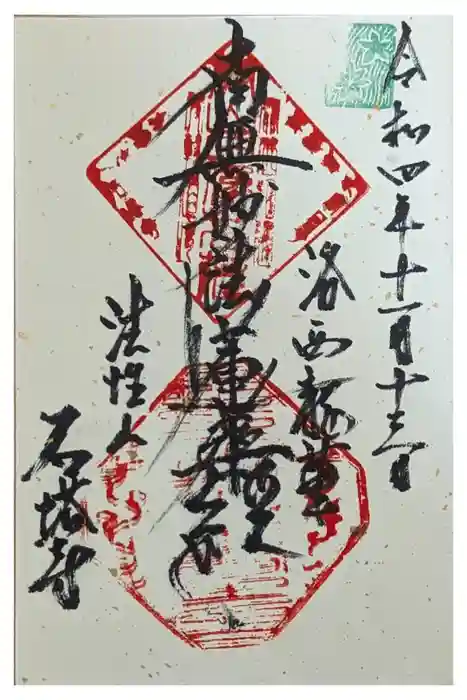 令和四年十一月十三日
洛西
南無妙法蓮華経
法性山
石塔寺